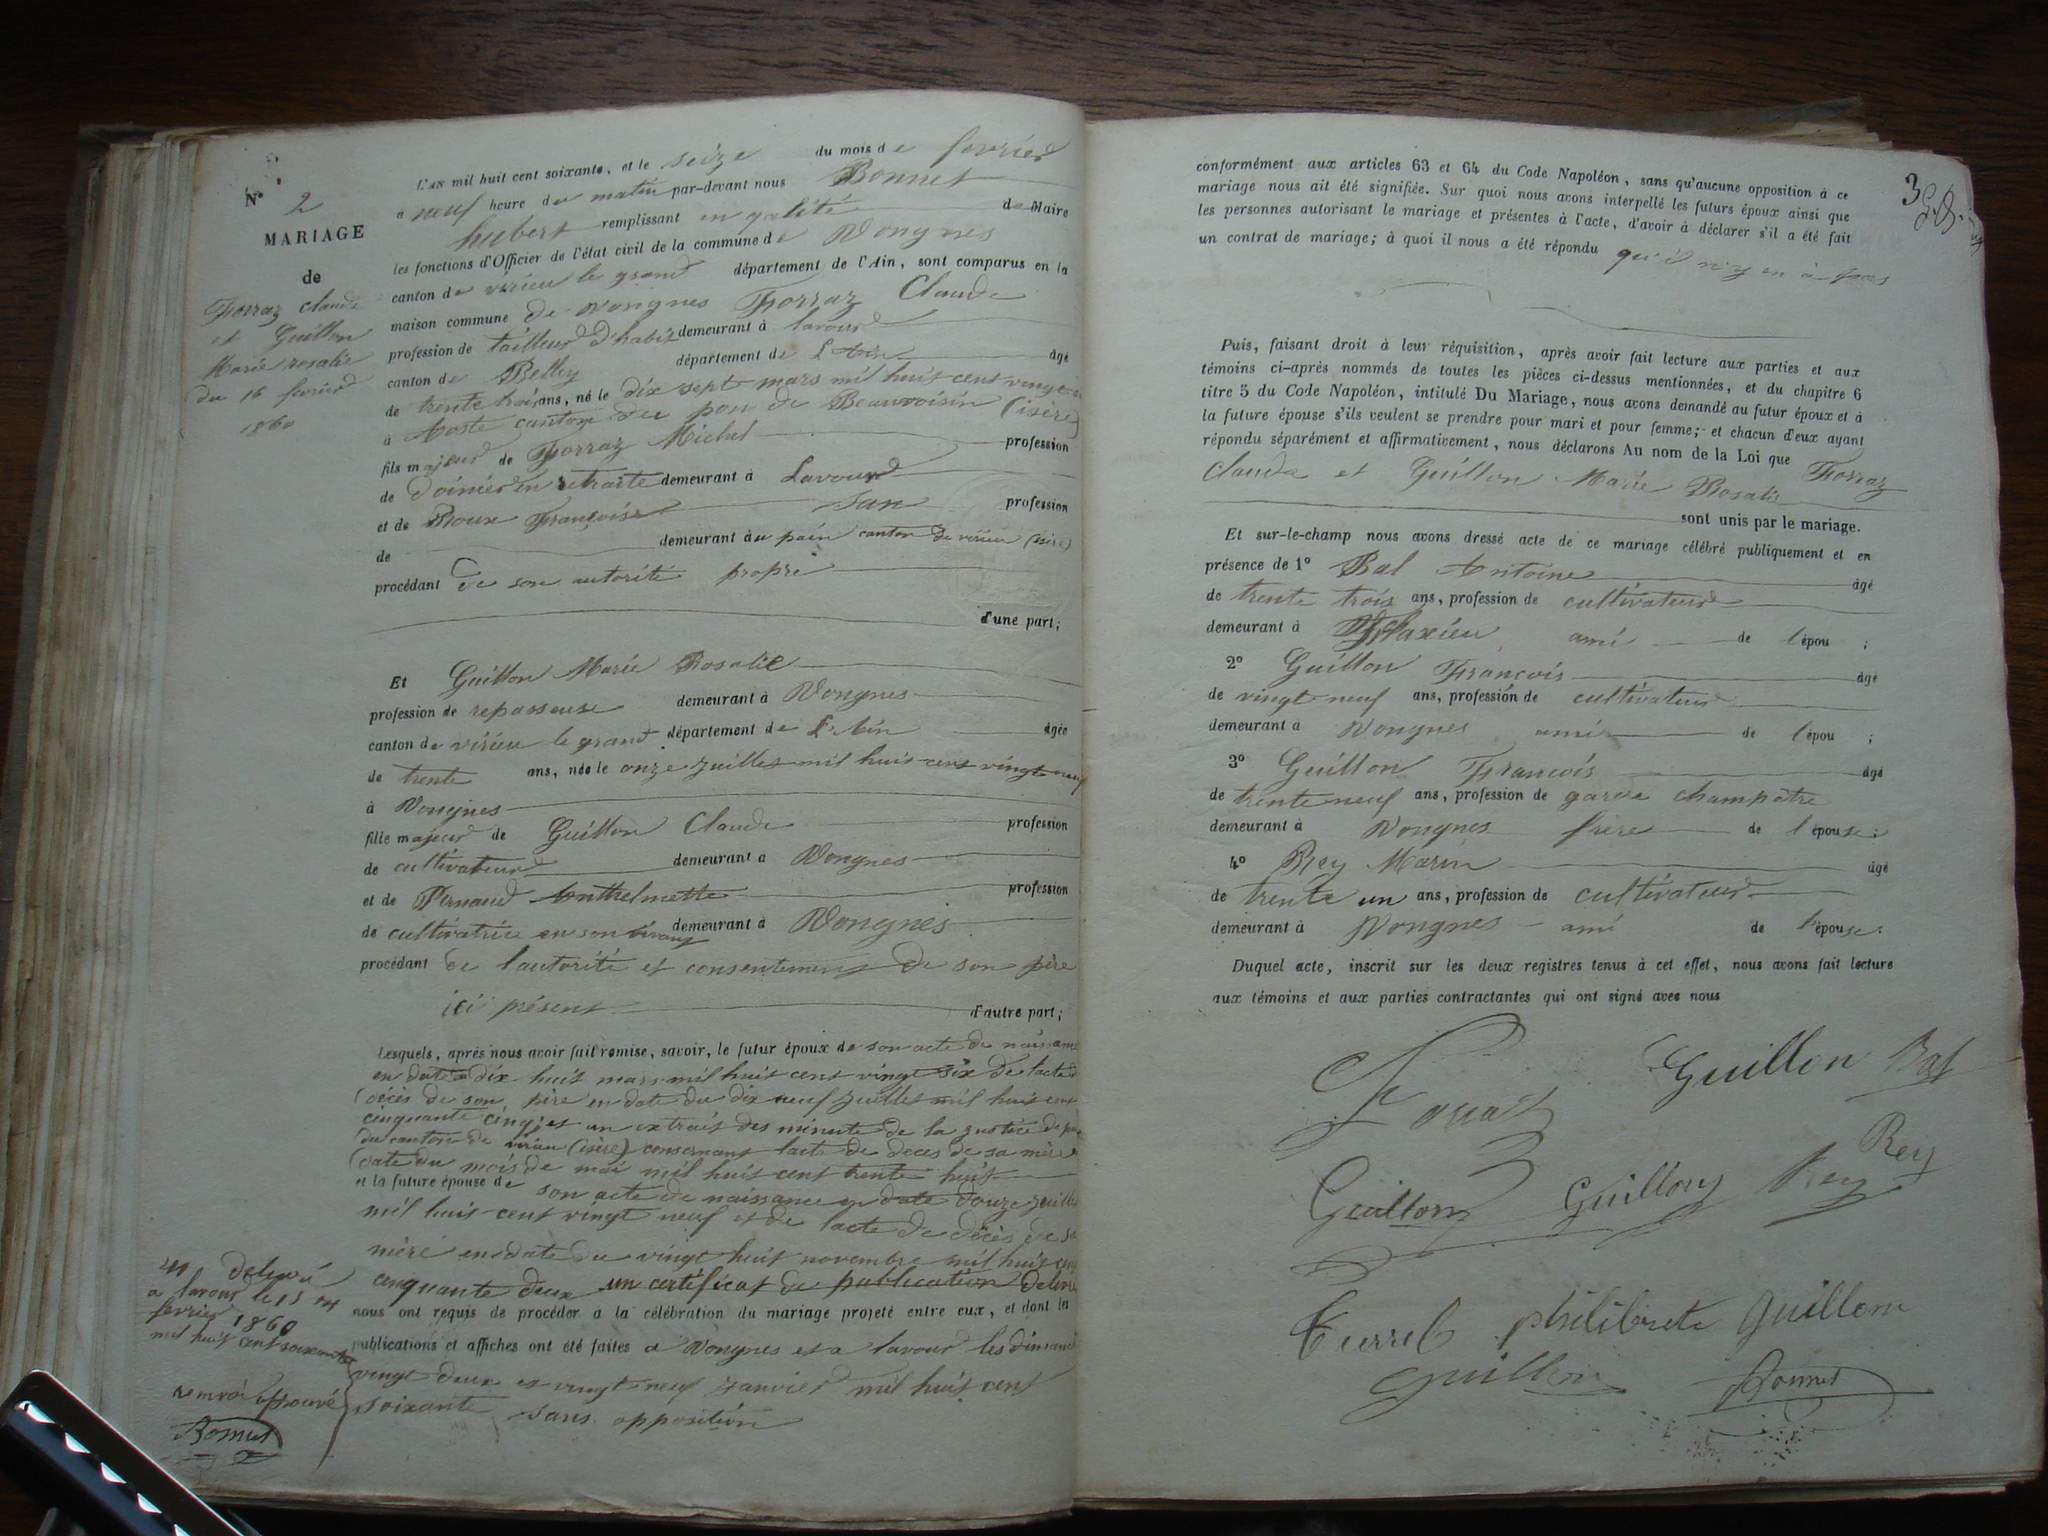 N° 2
MARIAGE
de
Forraz Claude
et Guillon
Marie rosalie
du 16 fevrier
1860
L'AN mil huit cent soixante, et le seize du mois de fevrier
à neuf heure du matin par-devant nous Bonnet
hubert remplissant en qalité de Maire
les fonctions d'Officier de l'état civil de la commune de Vongnes
canton de virieu le grand département de l'Ain, sont comparus en la
maison commune de vongnes Forraz Claude
profession de tailleur d'habit demeurant à lavour
canton de Belley département de L'Ain âgé
de trente trois ans, né le dix sept mars mil huit cent vingt
à Aoste canton du pon de Beauvoisin (isère)
fils majeur de Forraz Michel profession
de doinier en retraite demeurant à Lavour
et de Roux Françoise san profession
de demeurant au pain canton de virieu (isère)
procédant de son autorité propre
d'une part;
Et Guillon Marie Rosalie
profession de repasseuse demeurant à Vongnes
canton de virieu le grand département de L'Ain âgée
de trente ans, née le onze juillet mil huit cent vingt neuf
à Vongnes
fille majeur de Guillon Claude profession
de cultivateur demeurant a Vongnes
et de Anthelmette profession
de cultivatrice en son vivant demeurant à Vongnes
procédant de l'autorité et consentement de son père
ici présent d'autre part;
Lesquels, après nous avoir fait remise, savoir, le futur époux de son acte de naissance
en date dix huit mars mil huit cent vingt six de lacte
décès de son père en date du dix neuf juillet mil huit cent
cinquante cinq, et un extrait des minute de la justice de paix
du canton de virieu (isère) consernant lacte de deces de sa mère
date du mois de mai mil huit cent trente huit
et la future épouse de son acte de naissance en date douze juillet
mil huit cent vingt neuf et de lacte de décès de sa
mère en date du vingt huit novembre mil huit cent
cinquante deux un certificat de publication delivré
nous ont requis de procéder à la célébration du mariage projeté entre eux, et dont les
publications et affiches ont été faites a Vongnes et a lavour les dimanche
vingt deux et vingt neuf janvier mil huit cent
soixante sans opposition
delivré
a lavour le 15
fevrier 1860
mil huit cent soixante
renvoi approuvé
Bonnet
3
conformément aux articles 63 et 64 du Code Napoléon, sans qu'aucune opposition à ce
mariage nous ait été signifiée. Sur quoi nous avons interpellé les futurs époux ainsi que
les personnes autorisant le mariage et présentes à l'acte, d'avoir à déclarer s'il a été fait
un contrat de mariage; à quoi il nous a été répondu qu'il n'y en à pas
Puis, faisant droit à leur réquisition, après avoir fait lecture aux parties et aux
témoins ci-après nommés de toutes les pièces ci-dessus mentionnées, et du chapitre 6
titre 5 du Code Napoléon, intitulé Du Mariage, nous avons demandé au futur époux et à
la future épouse s'ils veulent se prendre pour mari et pour femme; et chacun d'eux ayant
répondu séparément et affirmativement, nous déclarons Au nom de la Loi que Forraz
Claude et Guillon Marie Rosalie
sont unis par le mariage.
Et sur-le-champ nous avons dressé acte de ce mariage célébré publiquement et en
présence de 1° Bal Antoine âgé
de trente trois ans, profession de cultivateur
demeurant à ami de l'épou ;
2° Guillon François âgé
de vingt neuf ans, profession de cultivateur
demeurant à Vongnes ami de l'épou ;
3° Guillon François âgé
de trente neuf ans, profession de garde champêtre
demeurant à Vongnes frère de l'épouse;
4° Rey Marin âgé
de trente un ans, profession de cultivateur
demeurant à Vongnes ami de l'épouse.
Duquel acte, inscrit sur les deux registres tenus à cet effet, nous avons fait lecture
aux témoins et aux parties contractantes qui ont signé avec nous
Forraz Guillon Bal
Guillon Guillon Rey Rey
philiberte guillon
guillon Bonnet